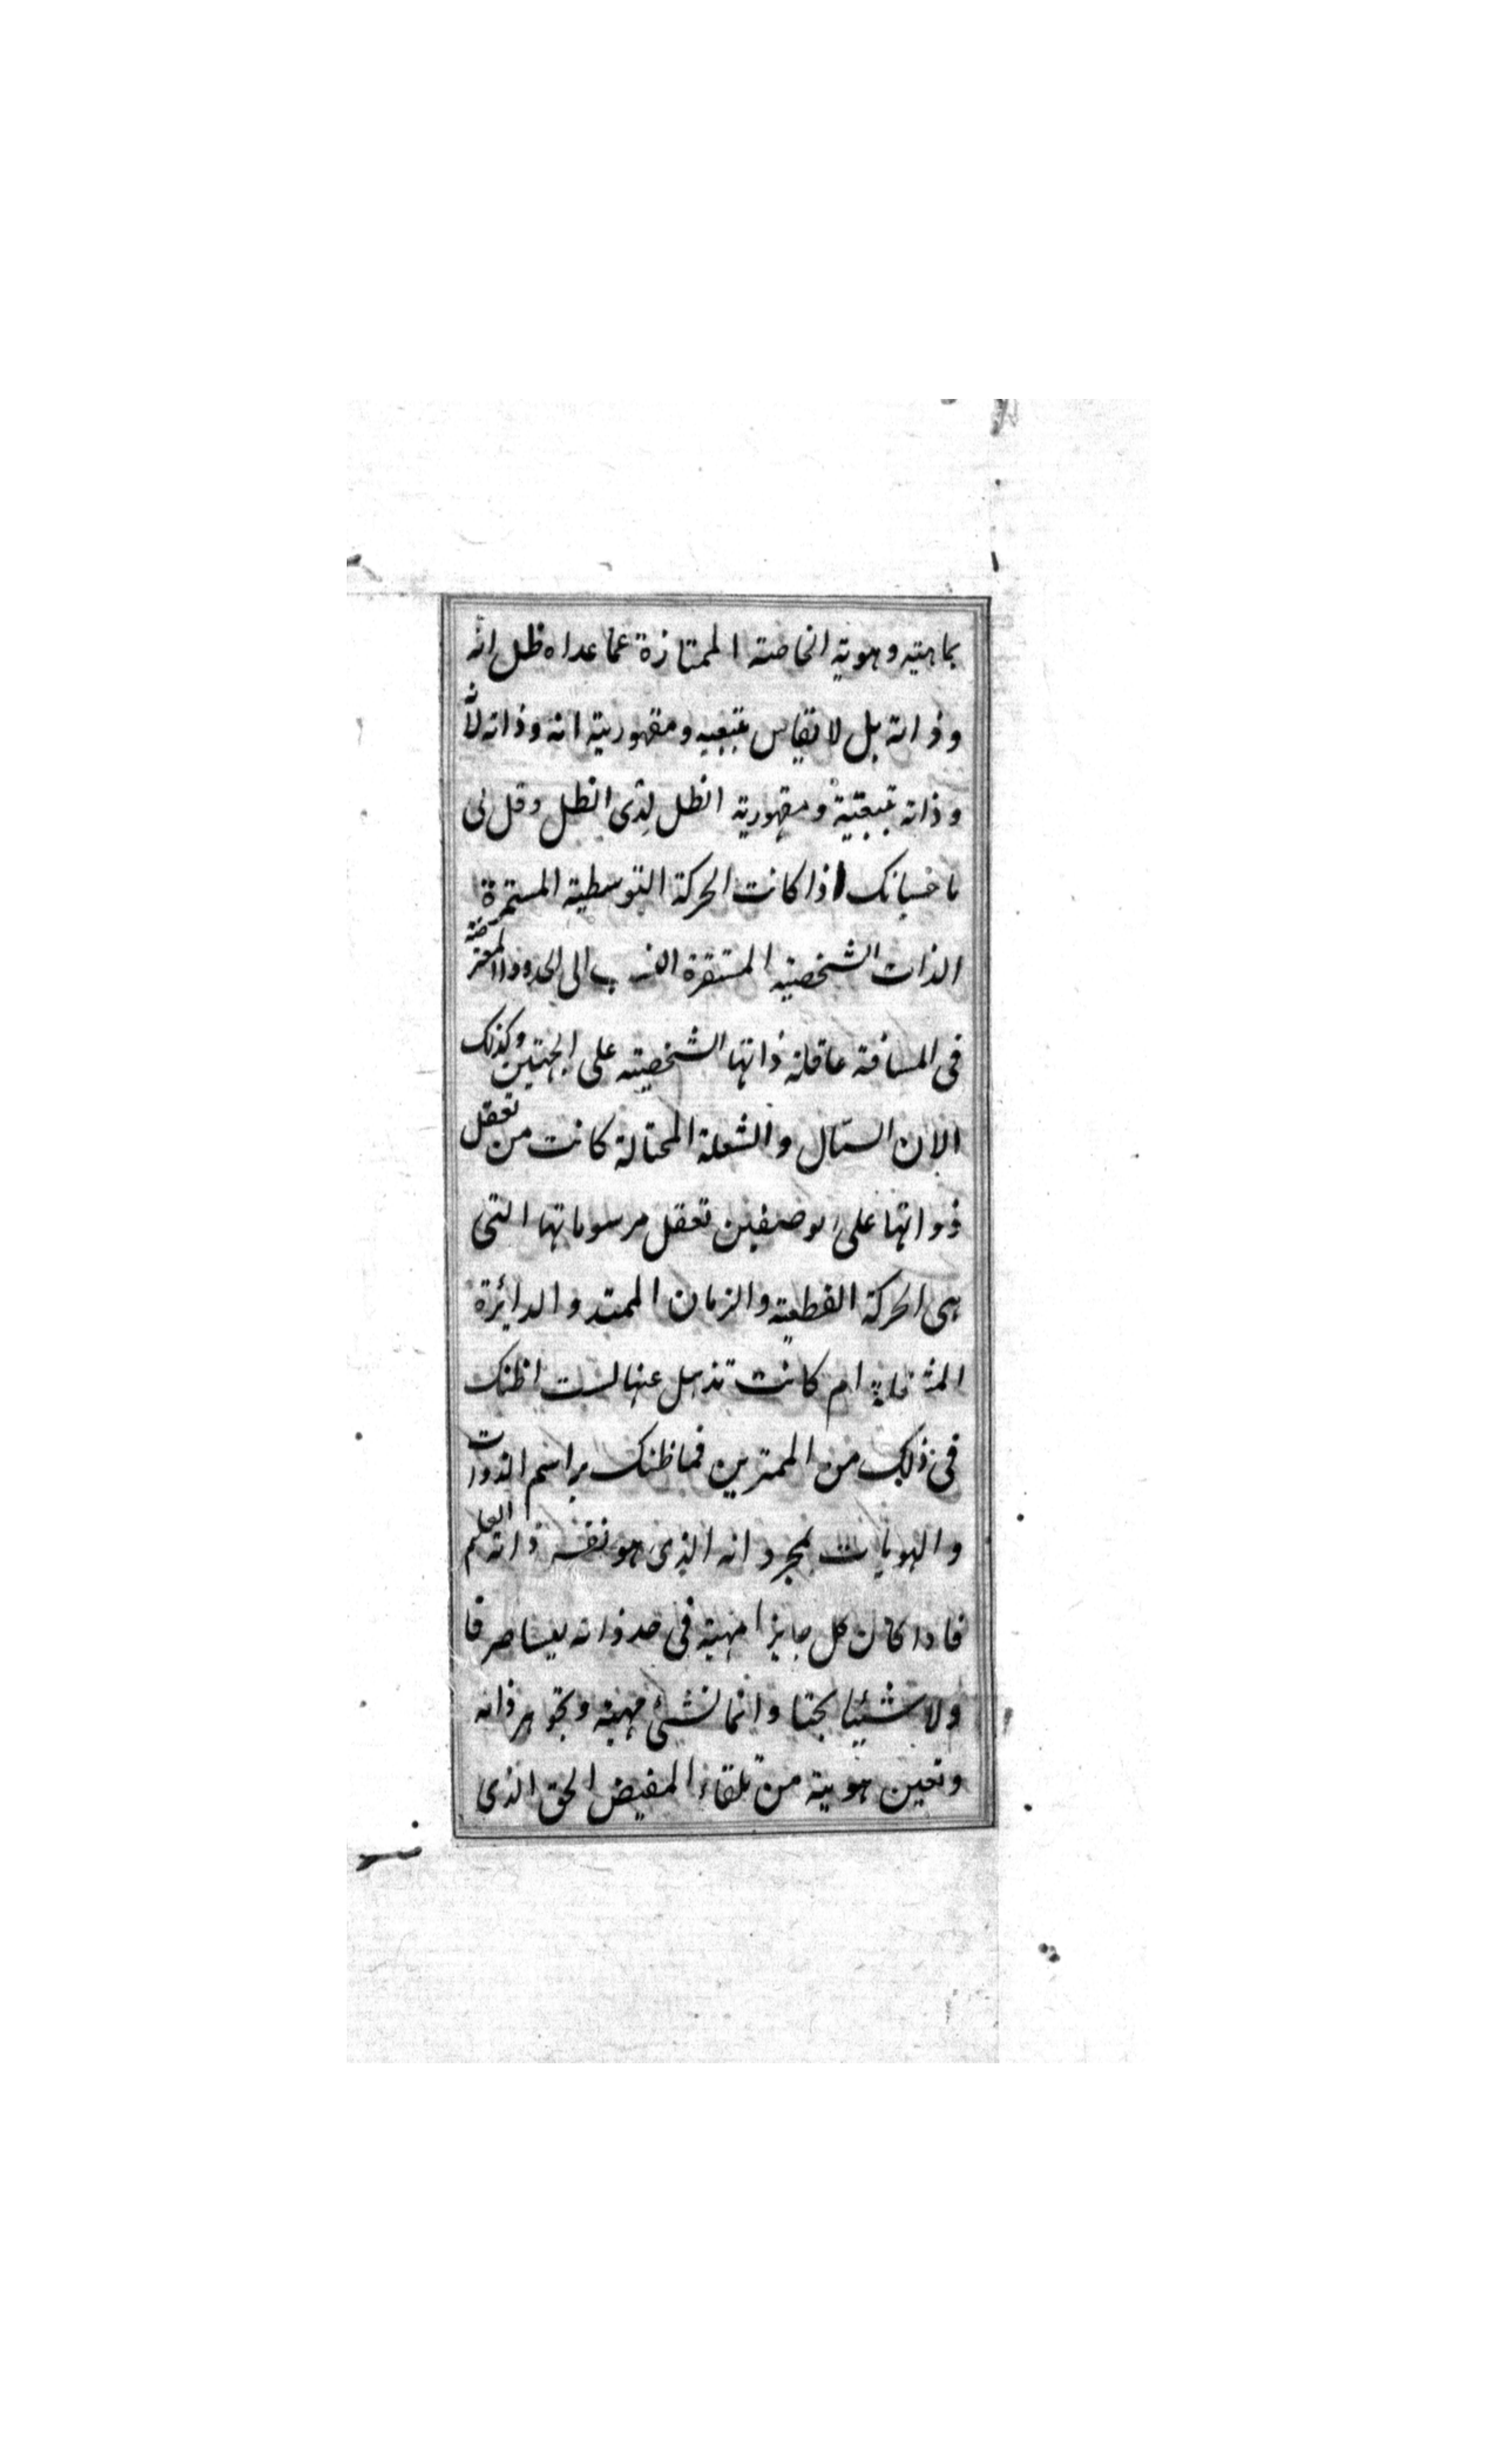 بماهيته وهويته الخاصة الممتازة عما عداه ظل انه
وذاته بل لا تقاس تبعيه ومقهورية انه وذاته لأنه
وذاته تبعية ومقهورية الظل لذى الظل وقل لى
ما حسبانك اذا كانت الحركة التوسطية المستمرة
الذات الشخصية المستقرة النسب الى الحدود المفترضة
فى المسافة عاقلة ذاتها الشخصية على الجهتين وكذلك
الان السيال والشعلة الجوالة كانت من تعقل
ذواتها على الوصفين تعقل مرسوماتها التى
هى الحركة القطعية والزمان الممتد والدائرة
ام كانت تذهل عنها لست اظنك
فى ذلك من الممترين فما ظنك براسم الذوات
والهويات بمجرد انه الذى هو نفس ذاته العليم
فاذا كان كل جايز المهية فى حد ذاته ليسا صرفا
ولا شيئا بحتا وانما تشيئ مهية وتجوهر ذاته
وتعين هوية من تلقاء المفيض الحق الذى